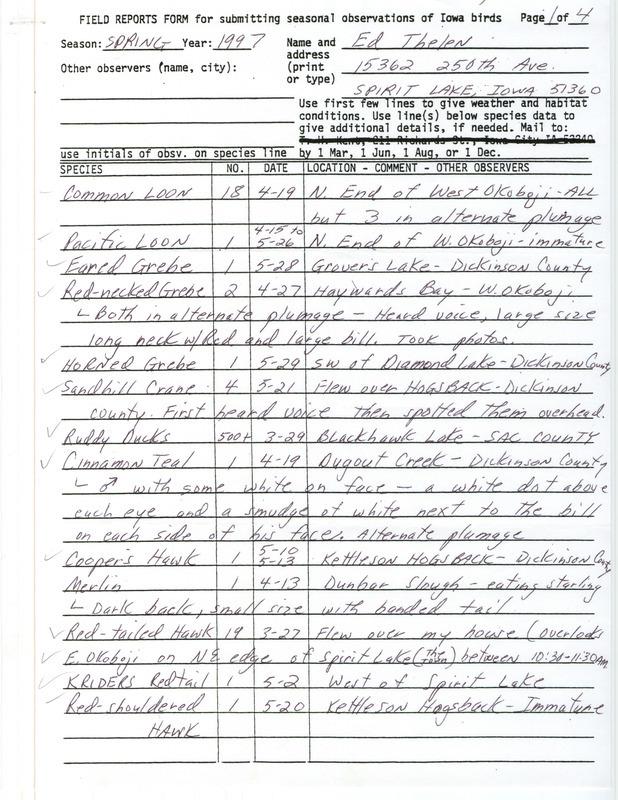 FIELD REPORTS FORM for submitting seasonal observations of Iowa birds Page 1 of 4
Season: SPRING Year: 1997 Name and Ed Thelen
address
Other observers (name, city): (print 15362 250th Ave.
or type)
SPIRIT LAKE, IOWA 51360
Use first few lines to give weather and habitat
conditions. Use line(s) below species data to
give additional details, if needed. Mail to:
T. H. Kent, 211 Richards St., Iowa City IA 52240
use initials of obsv. on species line by 1 Mar, 1 Jun, 1 Aug, or 1 Dec.
SPECIES NO. DATE LOCATION - COMMENT - OTHER OBSERVERS
Common Loon 18 4-19 N. End of West Okoboji - ALL
but 3 in alternate plumage
4-15 to
Pacific Loon 1 5-26 N. End of W. Okoboji - immature
Eared Grebe 1 5-28 Grovers Lake - Dickinson County
Red-necked Grebe 2 4-27 Haywards Bay - W. Okoboji.
Both in alternate plumage - Heard voice, large size
long neck w/Red and large bill. Took photos.
Horned Grebe 1 5-29 SW of Diamond Lake - Dickinson County
Sandhill Crane 4 5-21 Flew over HOGSBACK - Dickinson
county. First heard voice then spotted them overhead.
Ruddy Ducks 500+ 3-29 Blackhawk Lake - SAC COUNTY
Cinnamon Teal 1 4-19 Dugout Creek - Dickinson County
♂ with some white on face - a white dot above
each eye and a smudge of white next to the bill
on each side of his face. Alternate plumage
5-10
Cooper's Hawk 1 5-13 Kettleson HOGSBACK - Dickinson County
Merlin 1 4-13 Dunbar Slough - eating starling
Dark back, small size with banded tail
Red-tailed Hawk 19 3-27 Flew over my house (overlooks
E. Okoboji on NE edge of Spirit Lake (The Town) between 10:30-11:30 AM
KRIDERS Redtail 1 5-2 West of Spirit Lake
Red-shouldered 1 5-20 Kettleson Hogsback - Immature
HAWK